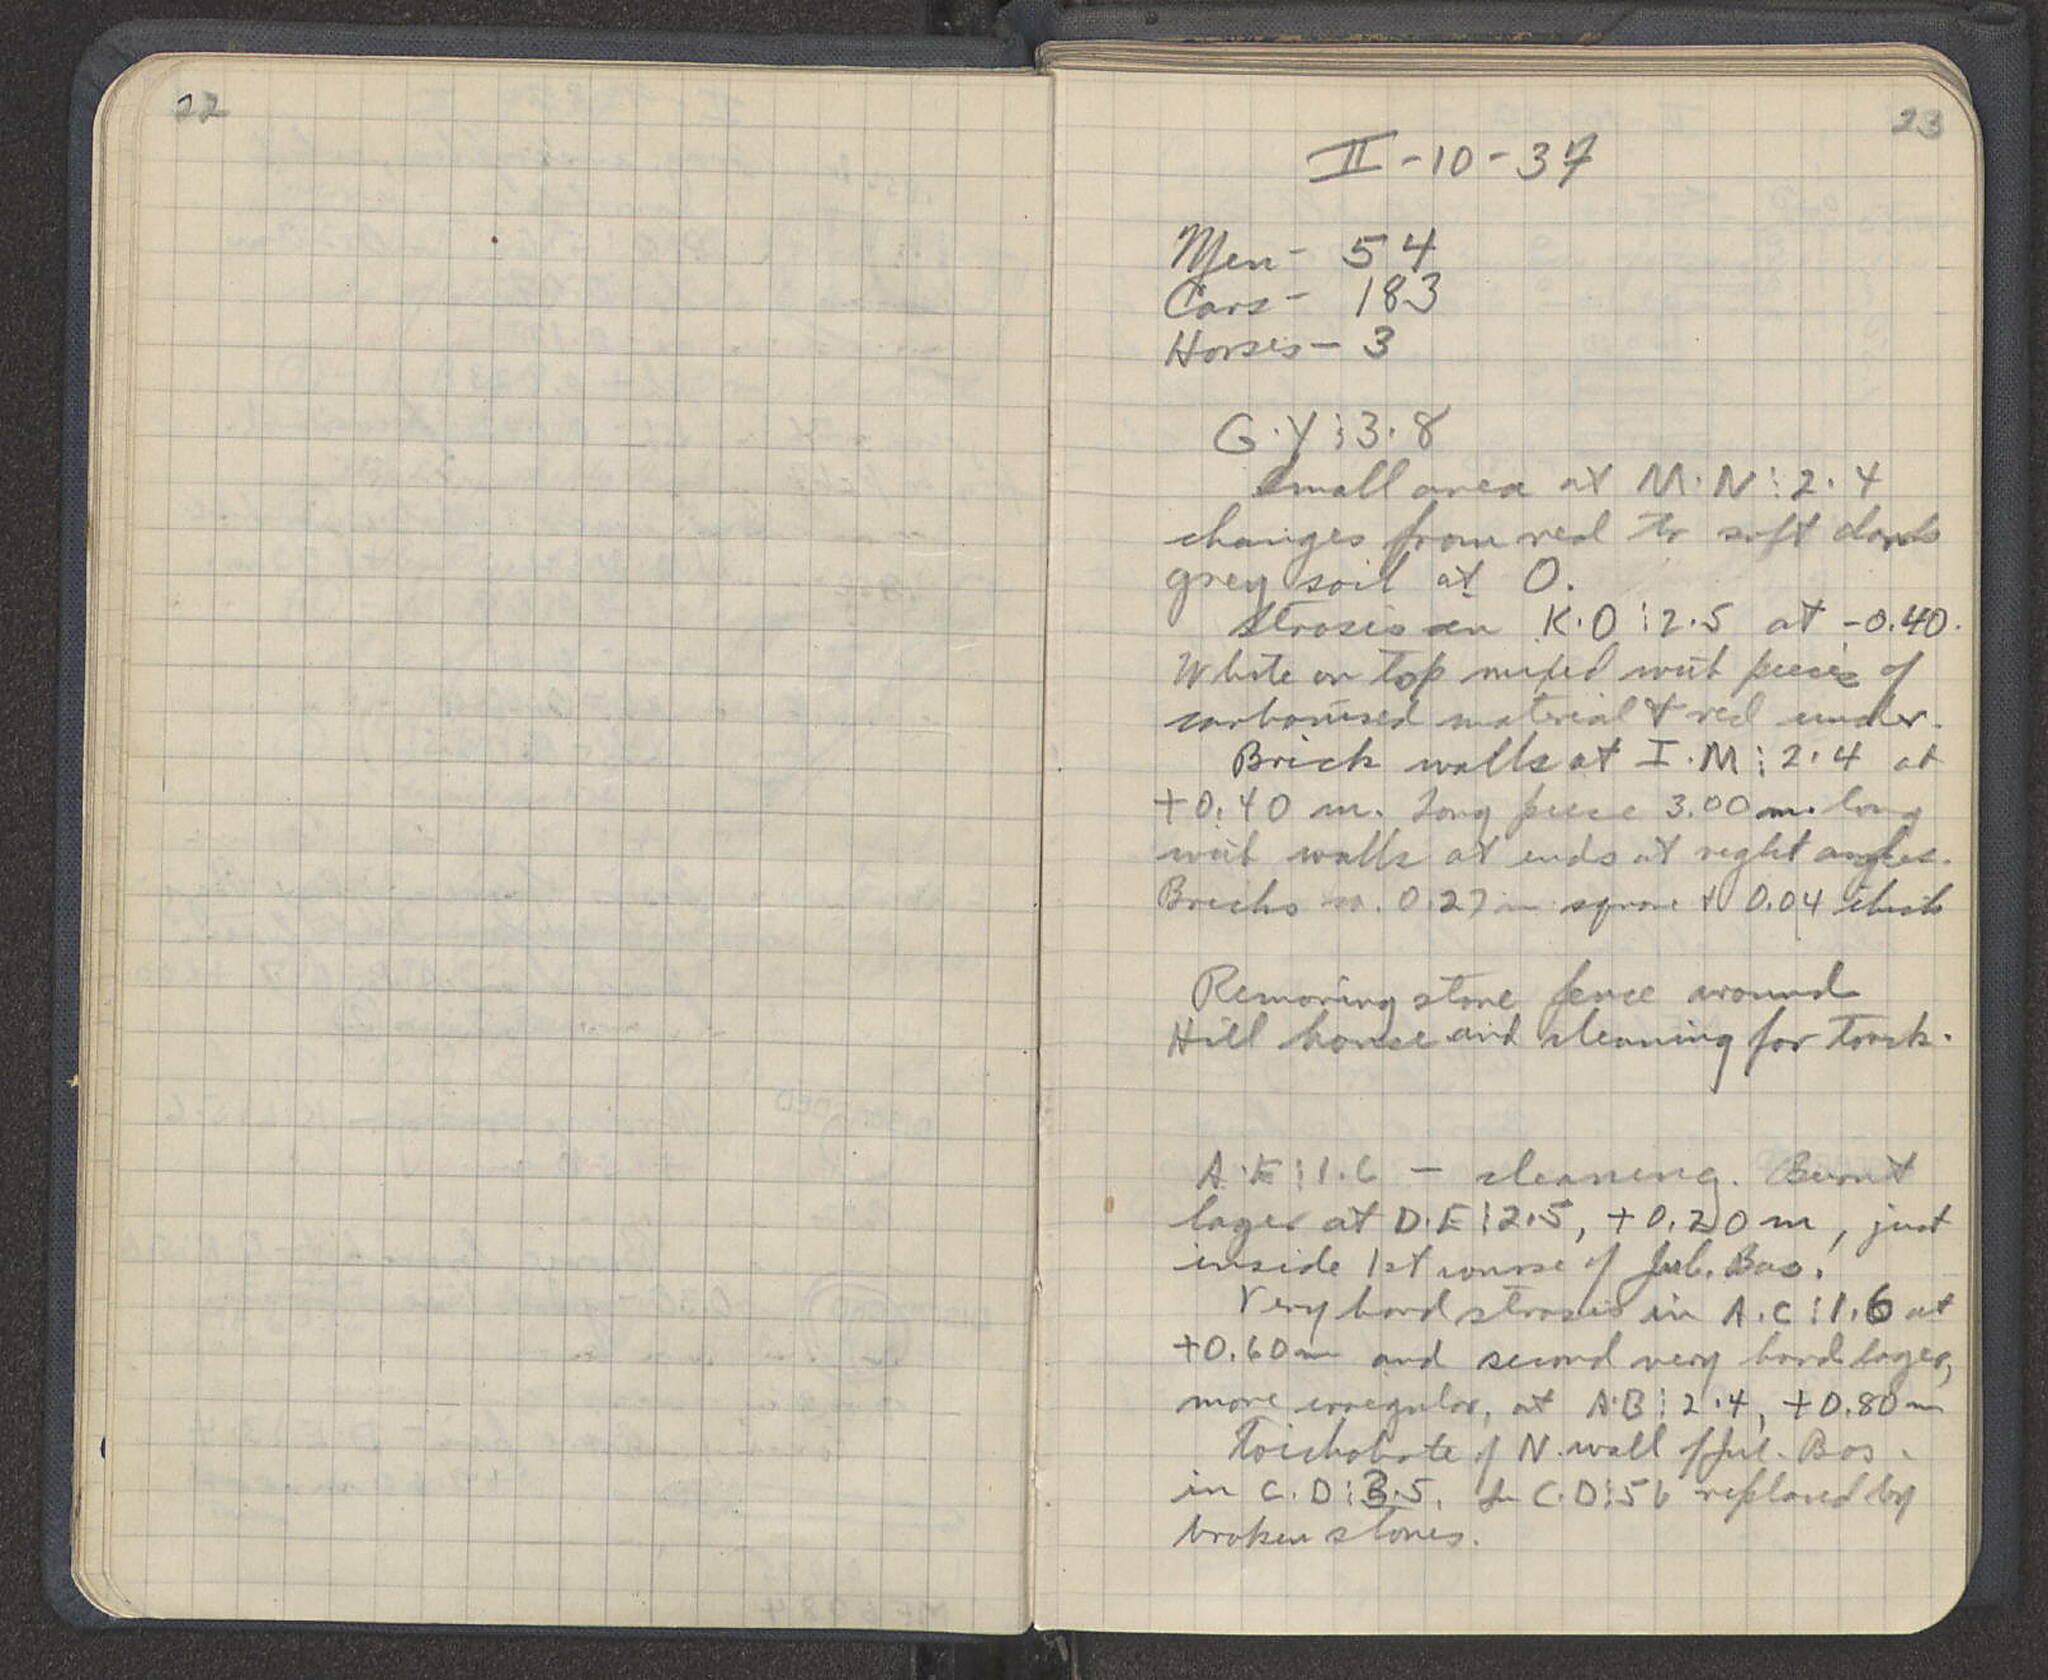 22
23
II-10-37
Men - 54
Cars - 183
Horses - 3
G.Y:3.8
Small area at M.N:2.4
changes from red to soft dark
grey soil at 0.
Strosis in K.O:2.5 at -0.40.
White on top mixed with pieces of
carbonised material & red under.
Brick walls at I.M:2.4 at
+0.40 m. Long piece 3.00 m. long
with walls at ends at right angles.
Bricks ca. 0.27 m square & 0.04 thick
Removing stone fence around
Hill house and cleaning for track.
A.E:1.6 - cleaning. Burnt
layer at D.E:2.5, +0.20 m, just
inside 1st course of Jul. Bas.
Very hard strosis in A.C:1.6 at
+0.60 m and second very hard layer,
more irregular, at A.B:2.4, +0.80 m
Toichobate of N. wall of Jul. Bas.
in C.D:3.5. In C.D:56 replaced by
broken stones.